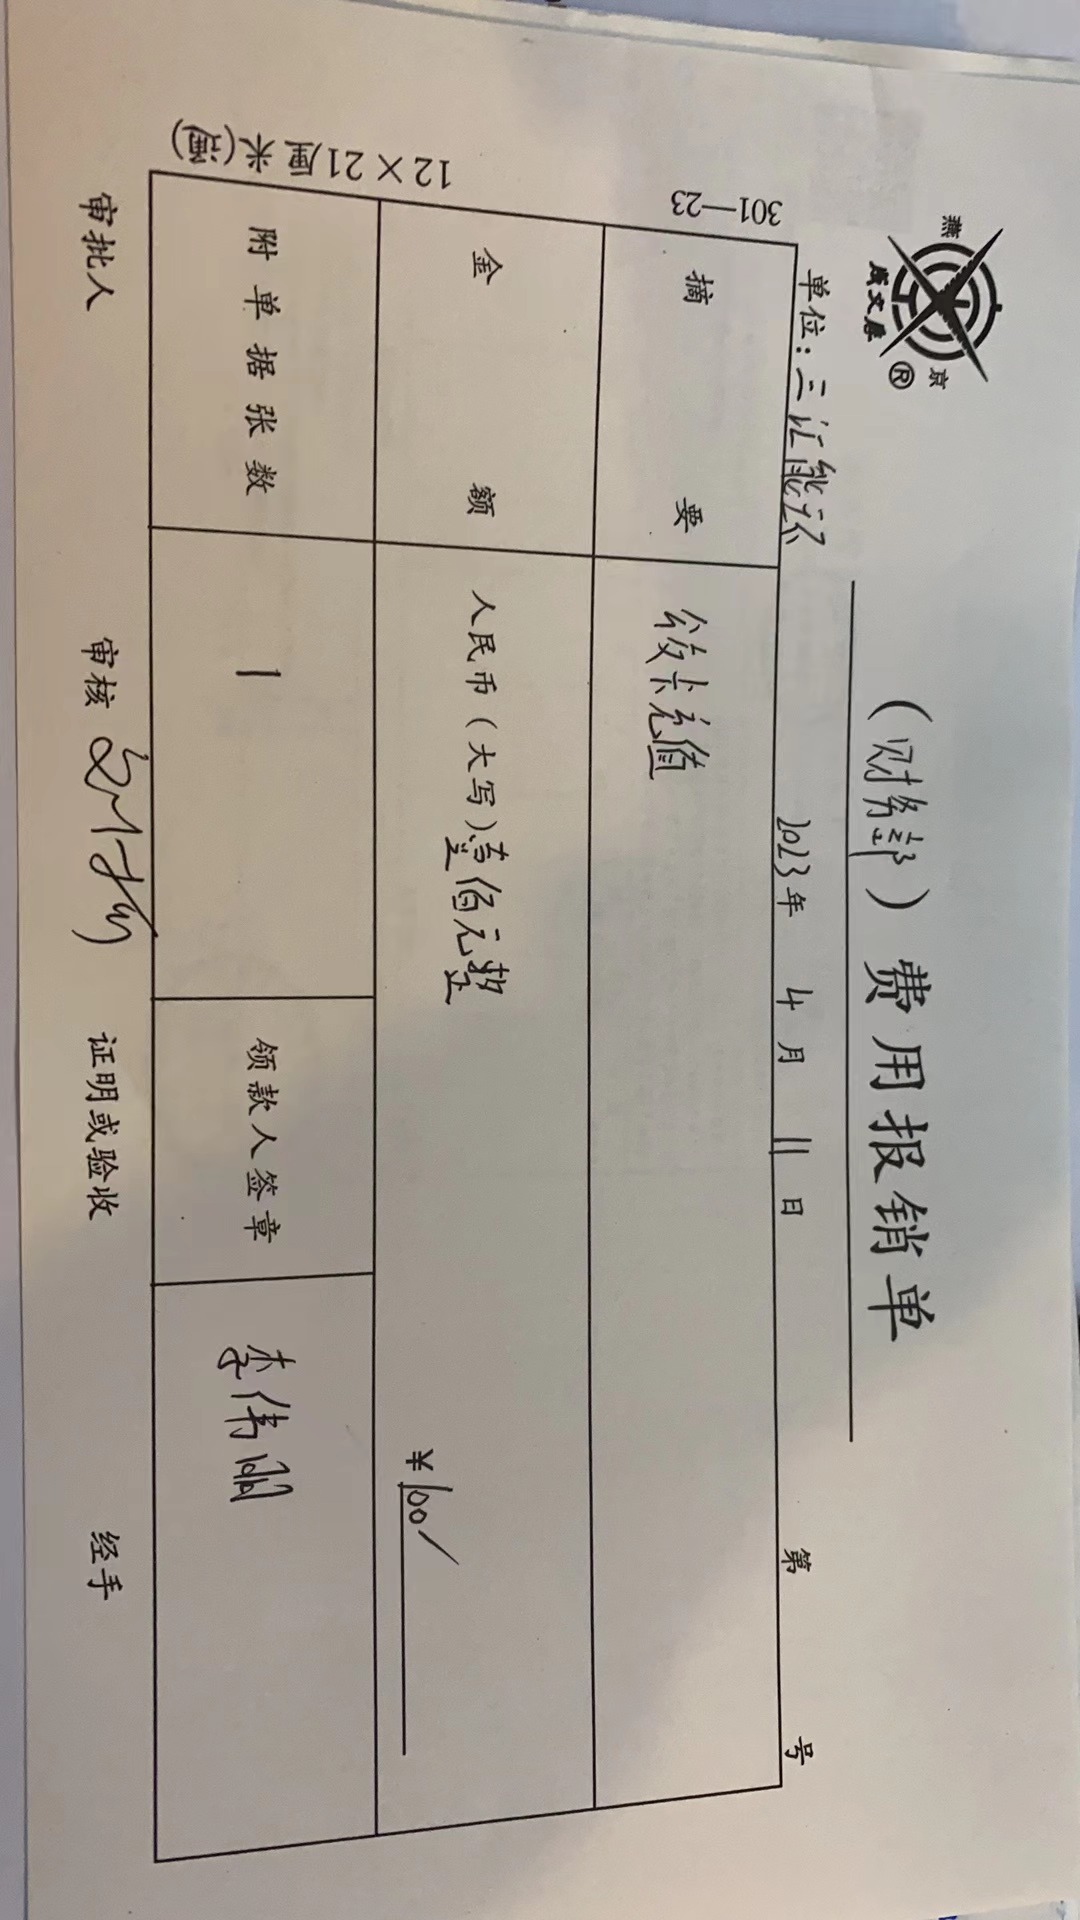 燕 京
成文厚 ®
（财务部）费用报销单
单位：三汇能环 2023年 4月 11日 第 号
301—23
摘要 公交卡充值
金额 人民币（大写）：壹佰元整 ¥100
附单据张数 1 领款人签章 李伟
12×21厘米(通)
审批人 审核 证明或验收 经手